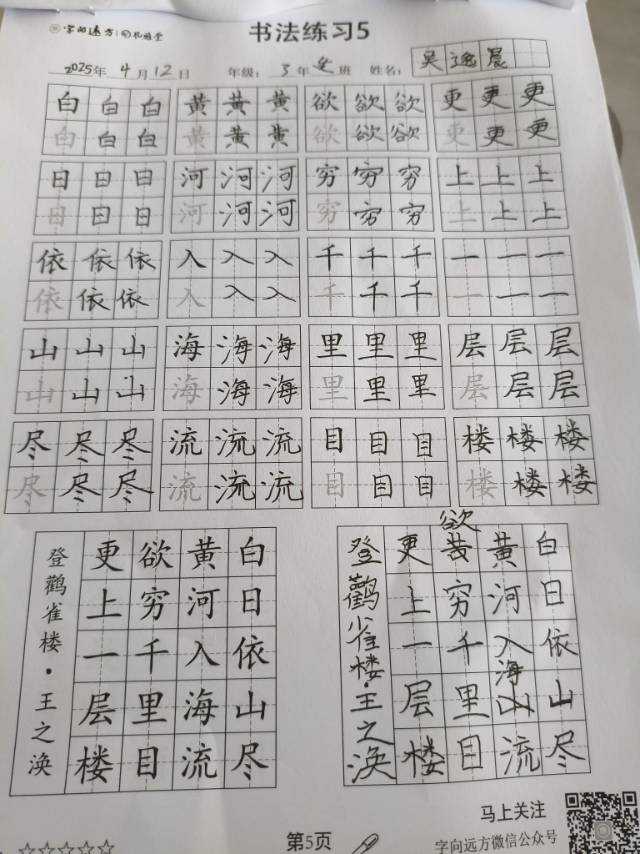 字向远方
书法练习5
2025年 4月12日 年级：3年 班 姓名：吴逸晨
白白白 黄黄黄 欲欲欲 更更更
白白白 黄黄黄 欲欲欲 更更更
日日日 河河河 穷穷穷 上上上
日日日 河河河 穷穷穷 上上上
依依依 入入入 千千千 一一一
依依依 入入入 千千千 一一一
山山山 海海海 里里里 层层层
山山山 海海海 里里里 层层层
尽尽尽 流流流 目目目 楼楼楼
尽尽尽 流流流 目目目 楼楼楼
登鹳雀楼·王之涣
白日依山尽
黄河入海流
欲穷千里目
更上一层楼
登鹳雀楼·王之涣
白日依山尽
黄河入海流
欲穷千里目
更上一层楼
马上关注
字向远方微信公众号
第5页
☆☆☆☆☆